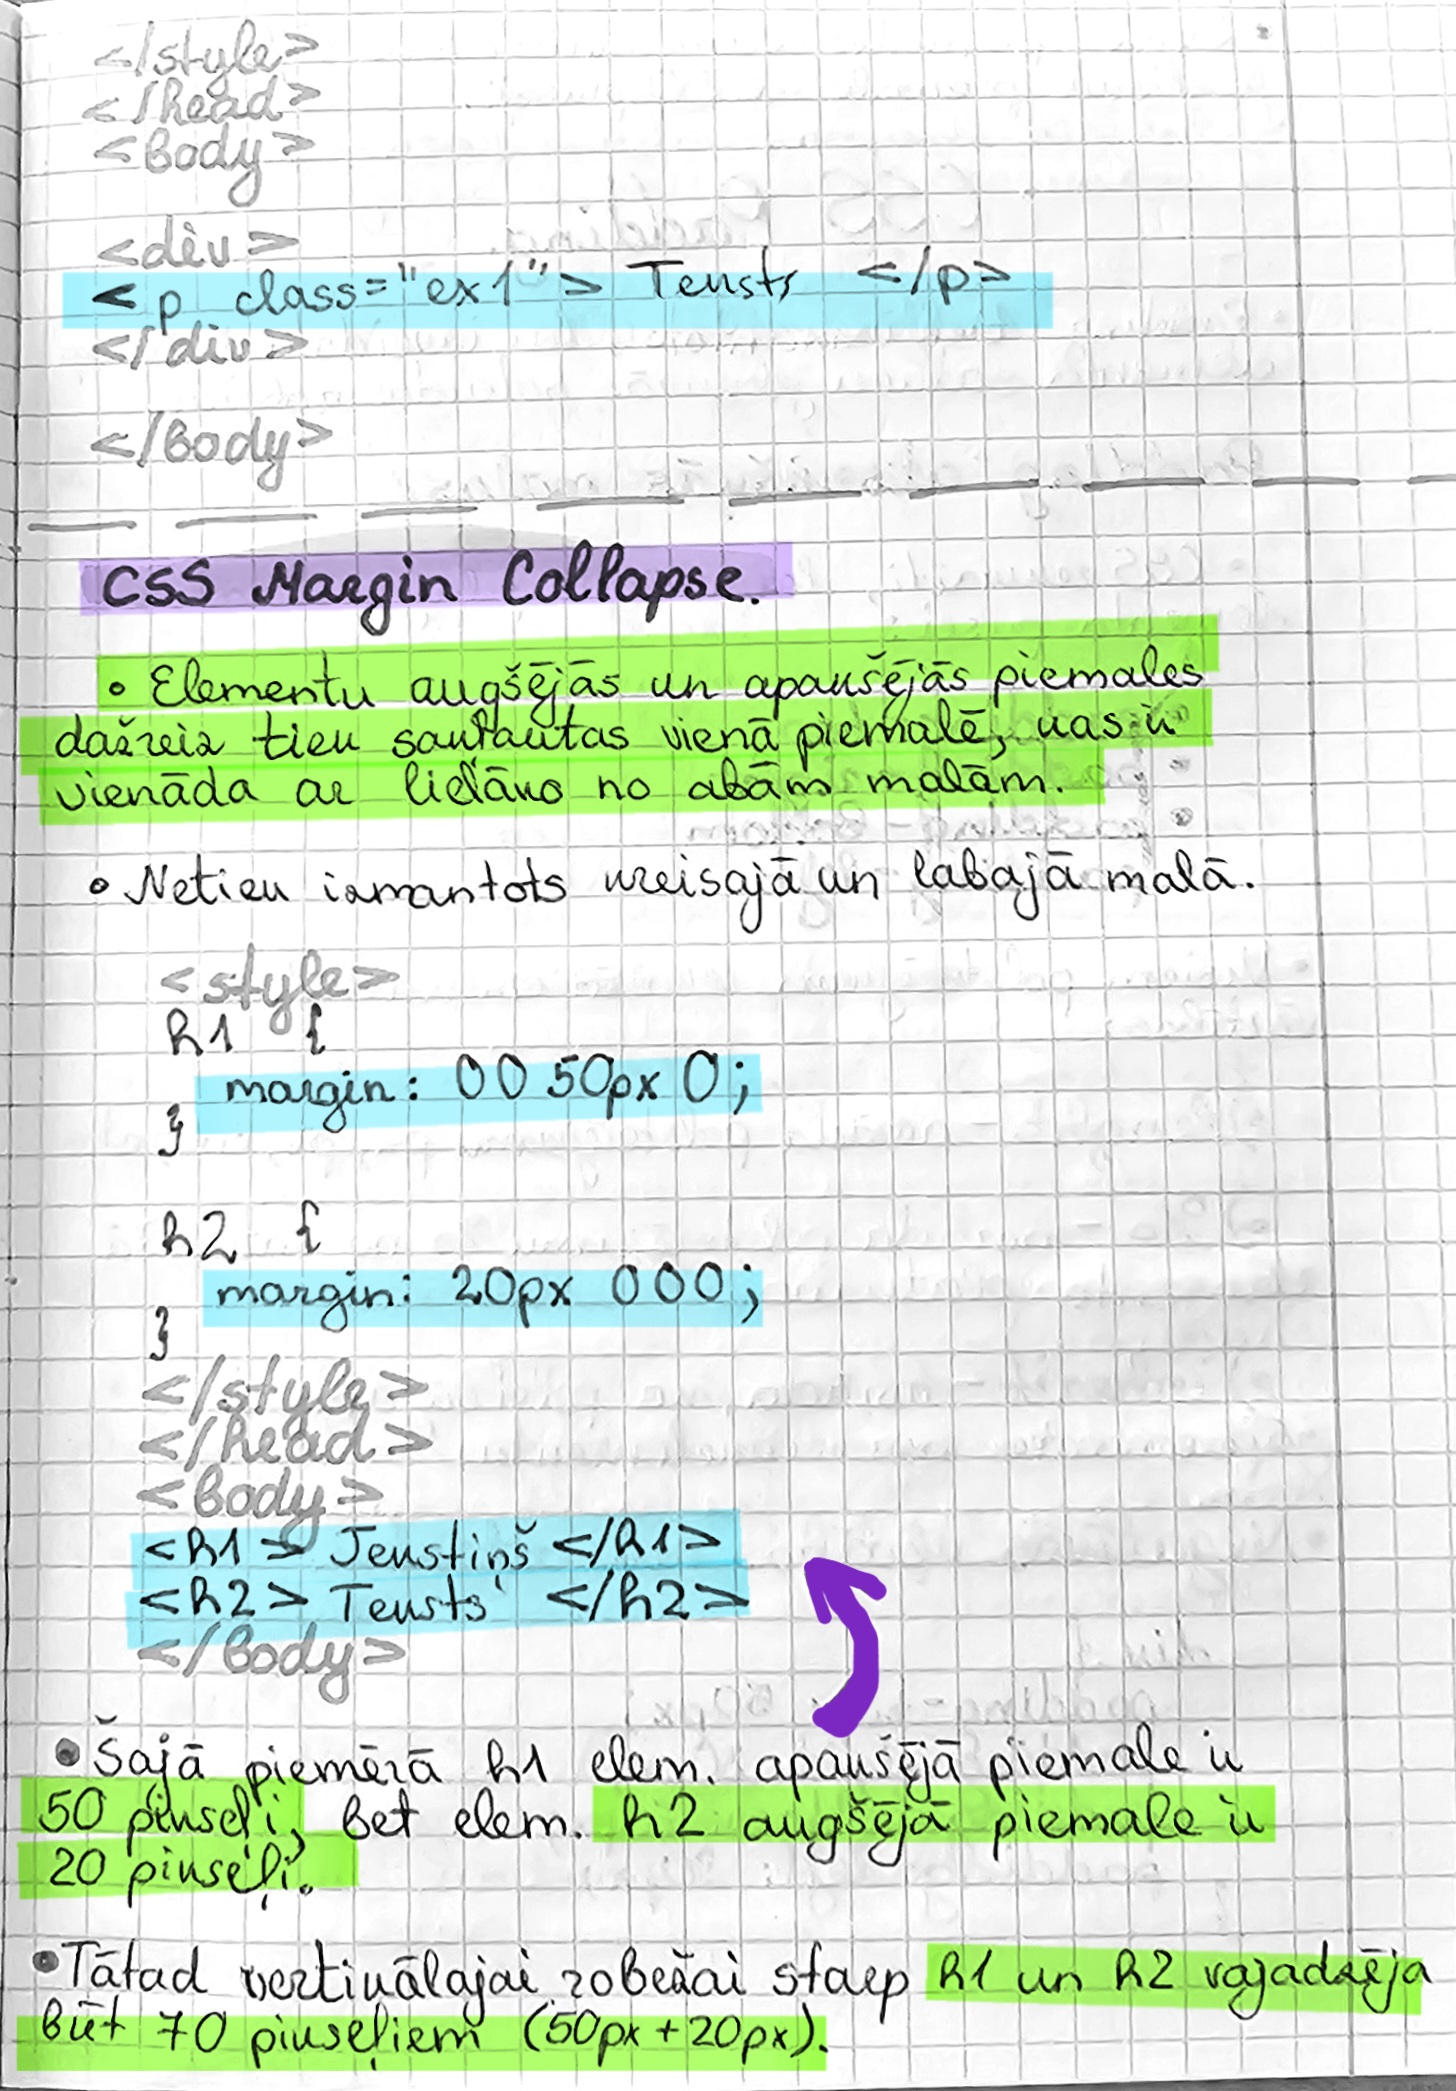 </style>
</head>
<body>
<div>
<p class="ex1"> Teksts </p>
</div>
</body>
CSS Margin Collapse.
• Elementu augšējās un apakšējās piemales
dažreiz tiek sakļautas vienā piemalē, kas ir
vienāda ar lielāko no abām malām.
• Netiek izmantots kreisajā un labajā malā.
<style>
h1 {
margin: 0 0 50px 0;
}
h2 {
margin: 20px 0 0 0;
}
</style>
</head>
<body>
<h1> Tekstiņš </h1>
<h2> Teksts </h2>
</body>
• Šajā piemērā h1 elem. apakšējā piemale ir
50 pikseļi, bet elem. h2 augšējā piemale ir
20 pikseļi.
• Tātad vertikālajai robežai starp h1 un h2 vajadzēja
būt 70 pikseļiem (50px + 20px).